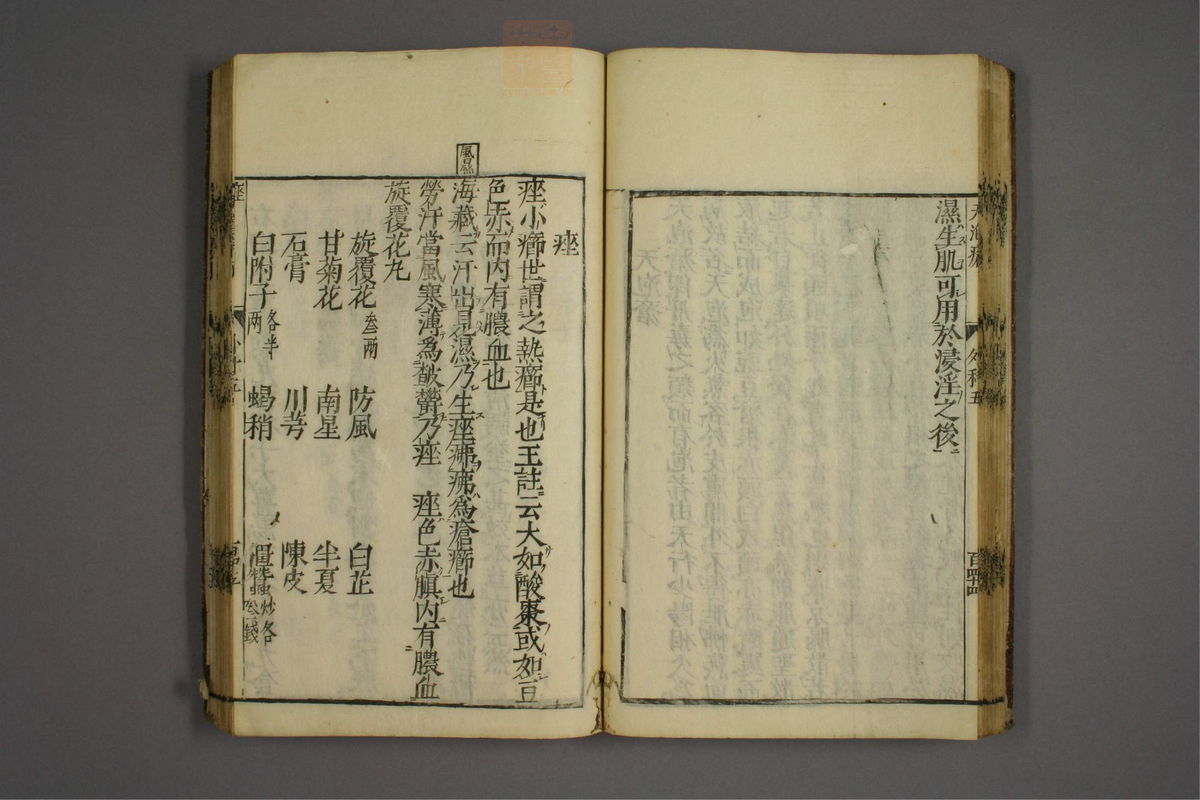 濕生肌可用於浸淫之後
痤
痤小癤世謂之熱癤是也王註云大如酸棗或如豆
色赤而內有膿血也
海藏云汗出見濕乃生痤疿疿為瘡癤也
勞汗當風寒薄為皶鬱乃痤　痤色赤䐜內有膿血
旋覆花丸
旋覆花叁兩　防風　白芷
甘菊花　南星　半夏
石膏　川芎　陳皮
白附子各半兩　蝎稍　僵蠶炒各叁錢